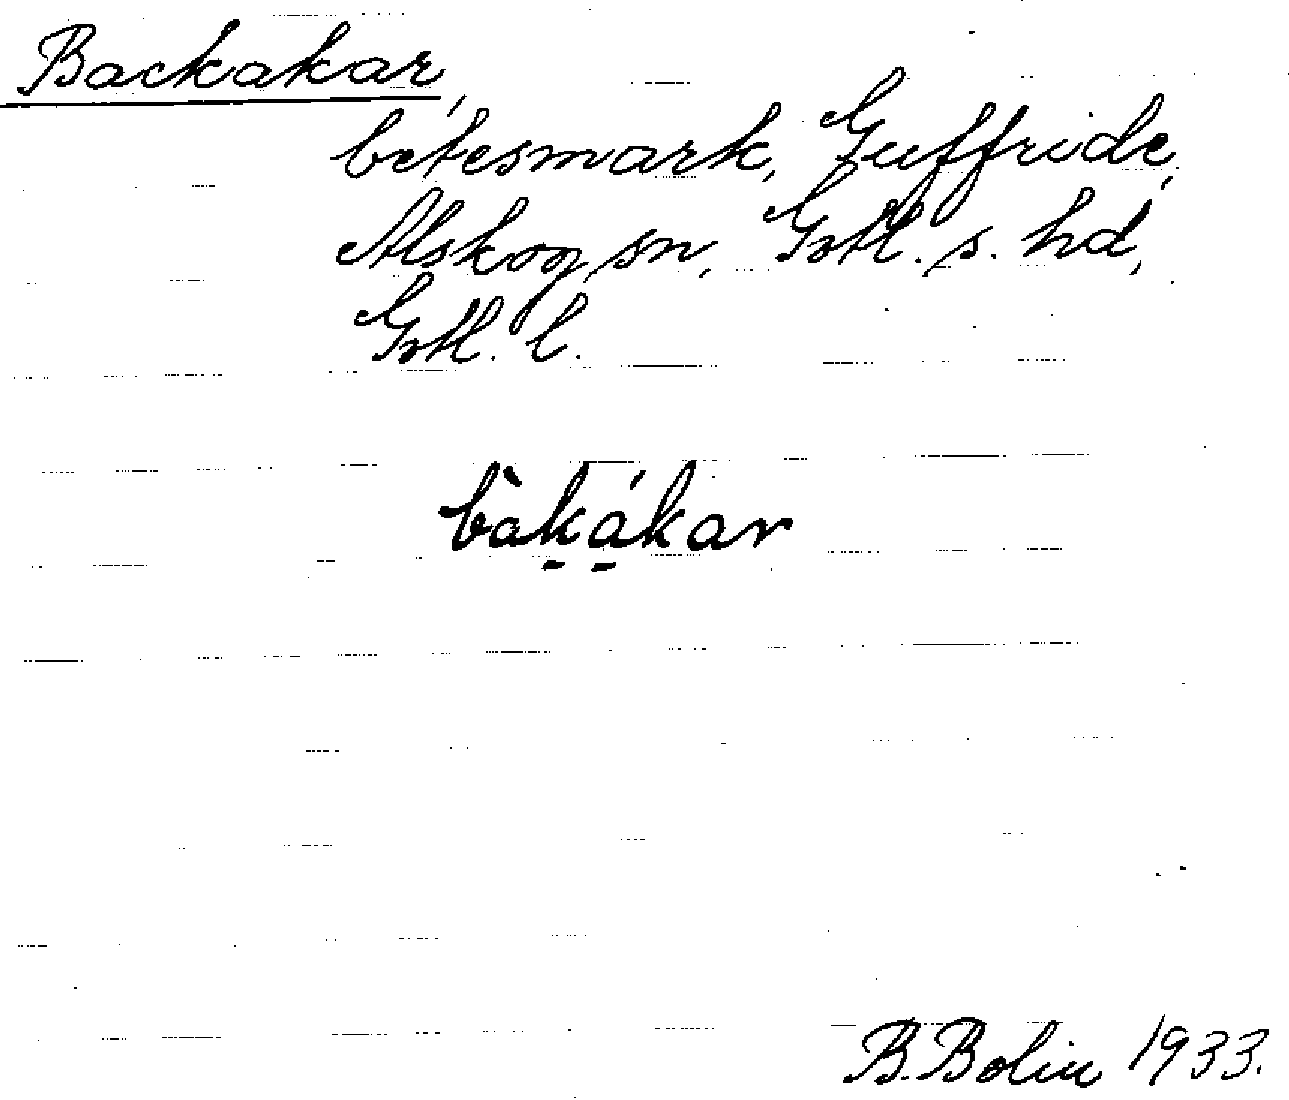 Backakar,
betesmark, Guffride,
Alskog sn, Gotl. s. hd,
Gotl. l.
bàk̠á̠kar
B. Bolin 1933.